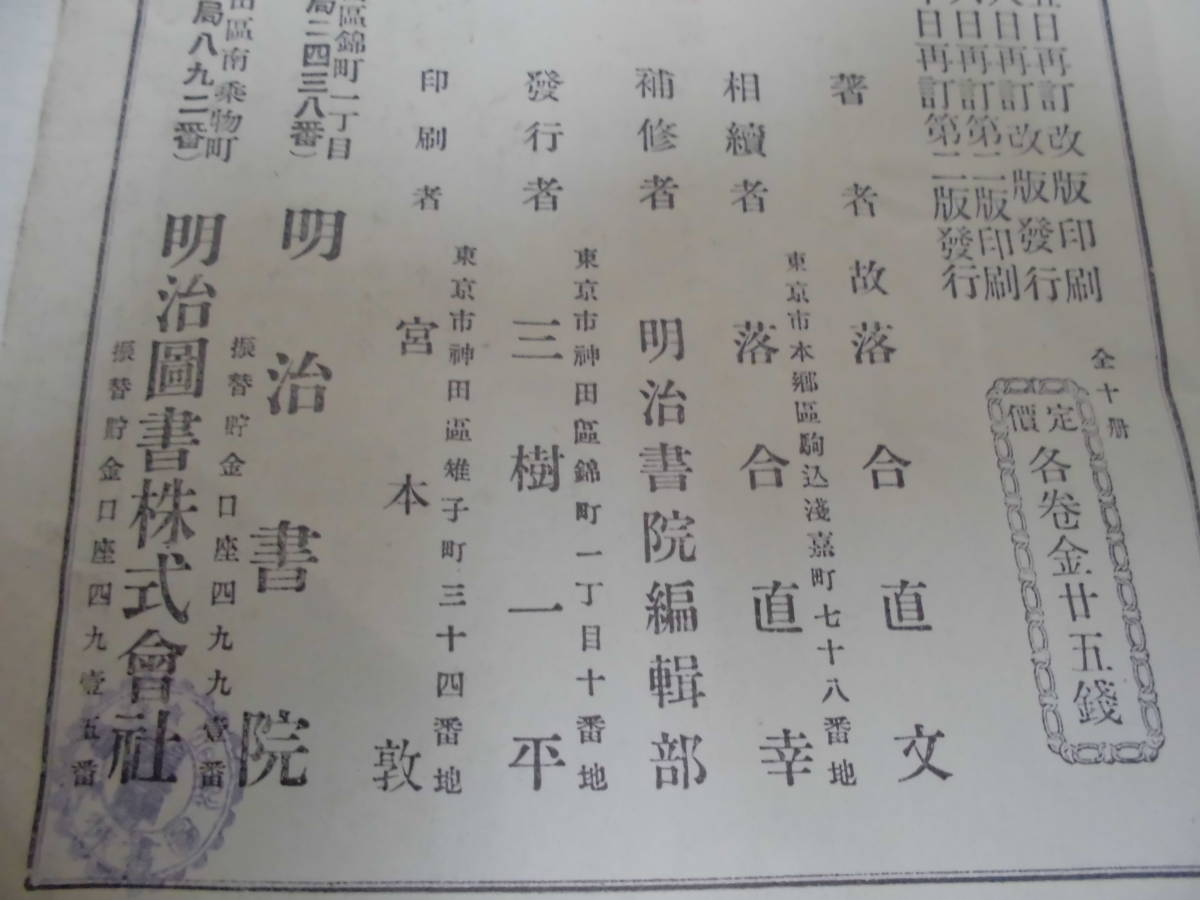 五日再訂改版印刷
八日再訂改版發行
八日再訂第二版印刷
十日再訂第二版發行
全十册
定價
各卷金廿五錢
著者 故落合直文
東京市本鄕區駒込淺嘉町七十八番地
相續者 落合直幸
補修者 明治書院編輯部
東京市神田區錦町一丁目十番地
發行者 三樹一平
東京市神田區雉子町三十四番地
印刷者 宮本敦
區錦町一丁目
局二四三八番)
明治書院
振替貯金口座四九九壹番
田區南乘物町
局八九二番)
明治圖書株式會社
振替貯金口座四九壹五番